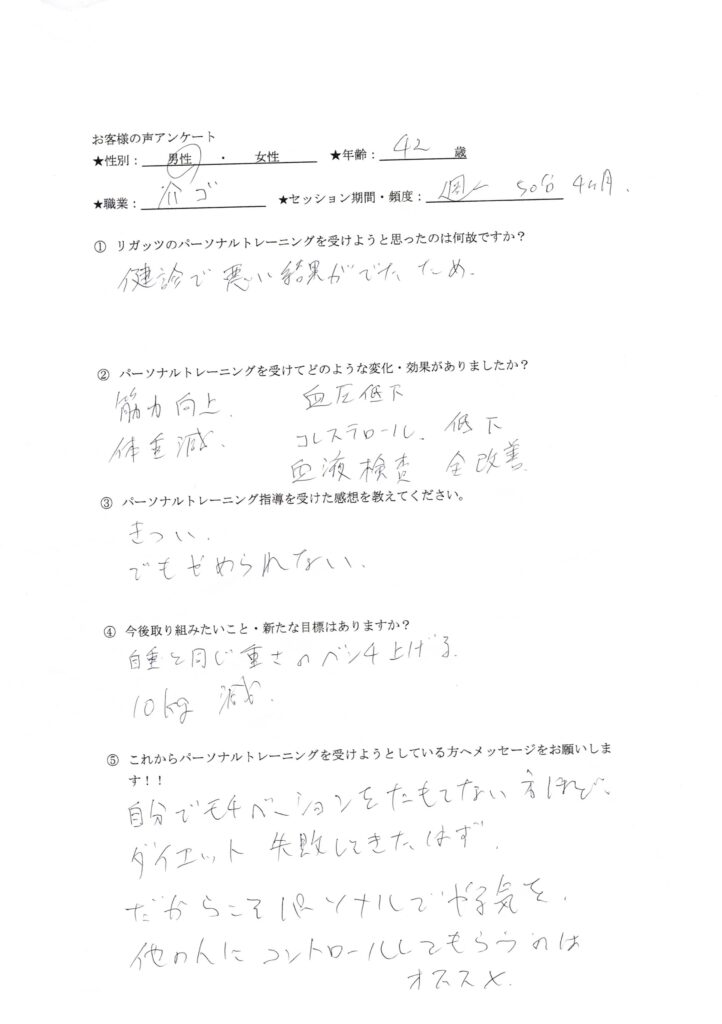 お客様の声アンケート
★性別：　男性　・　女性　★年齢：　42　歳
★職業：　介ゴ　★セッション期間・頻度：　週1　50分　4ヶ月.
① リガッツのパーソナルトレーニングを受けようと思ったのは何故ですか？
健診で悪い結果がでたため.
② パーソナルトレーニングを受けてどのような変化・効果がありましたか？
筋力向上.　血圧低下
体重減.　コレステロール.　低下
血液検査　全改善.
③ パーソナルトレーニング指導を受けた感想を教えてください。
きつい.
でもやめられない.
④ 今後取り組みたいこと・新たな目標はありますか？
自重と同じ重さのベンチ上げる.
10kg　減.
⑤ これからパーソナルトレーニングを受けようとしている方へメッセージをお願いしま
す！！
自分でモチベーションをたもてない方ほど、
ダイエット　失敗してきたはず.
だからこそパーソナルでやる気を、
他の人にコントロールしてもらうのは
オススメ.